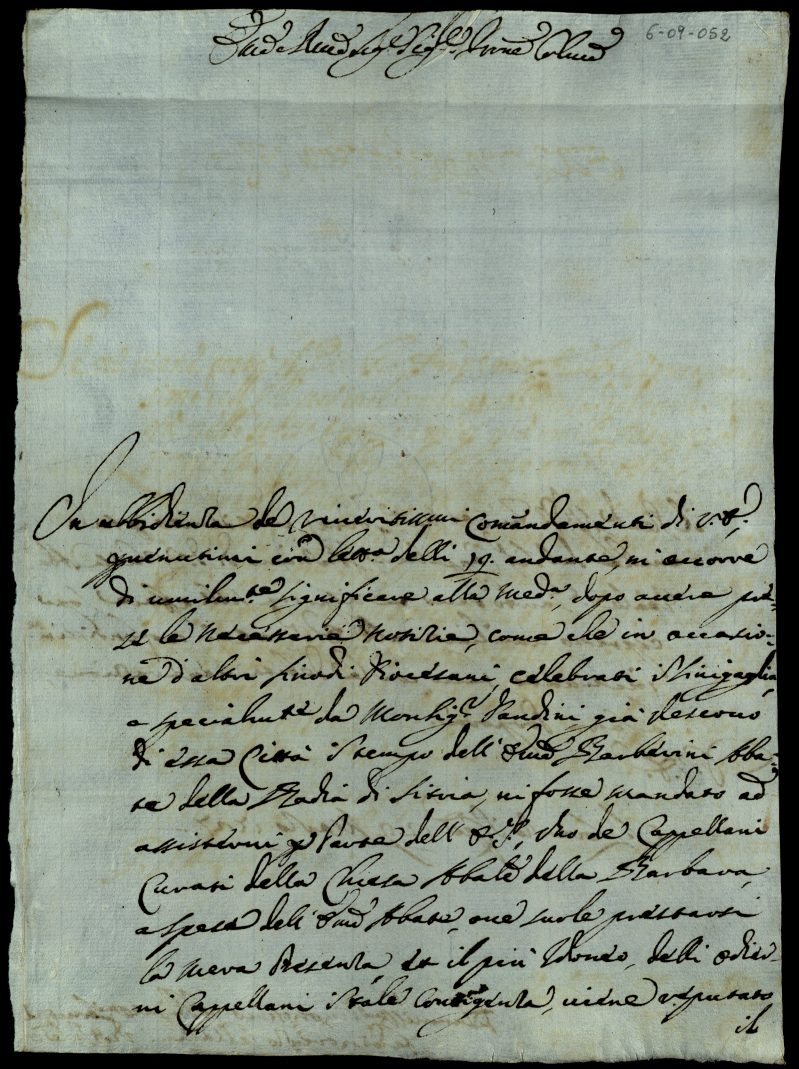 6-09-052
Em.o e Rev.mo Sig.re Sig.re Prone Col.mo
In ubbidienza de riveritissimi Comãdamenti di V. E.,
con lett.a delli 19. andante, mi occorre
di umilm.te significare alla med.a, dopo avere pre-
se le necessarie notizie, come che in occasio-
ne d'altri sinodi Diocesani, celebrati i Sinigaglia,
e specialm.te da Monsig.r Dandini già Vescovo
di essa Città i tempo dell' Em.o Barberini Aba-
te della Badia di Sitria, vi fosse mandato ad
assistervi p Parte dell' E. S., Uno de Cappellani
Curati della Chiesa Abale della Barbara,
a spese dell' Em.o Abate, ove suole prestarsi
la mera Presenza, et il più Idoneo, delli odier-
ni Cappellani i tale contigenza, viene reputato
il